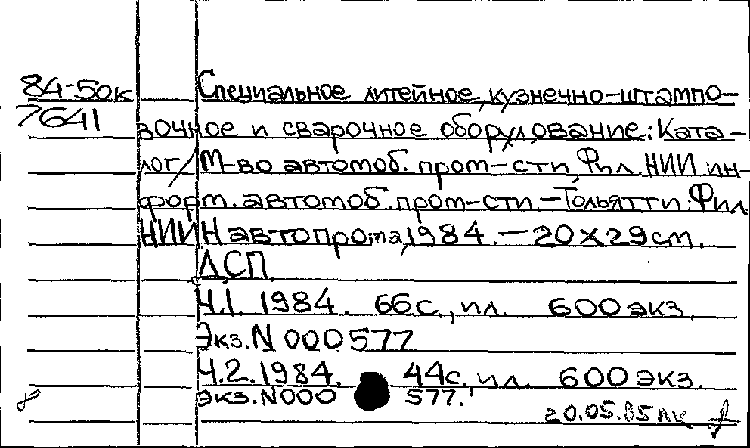 84-50к Специальное литейное, кузнечно-штампо-
7641 вочное и сварочное оборудование: Ката-
лог/М-во автомоб. пром-сти, Фил. НИИ ин-
форм. автомоб. пром-сти.-Тольятти: Фил.
НИИНавтопрома, 1984.-20х29см.
ДСП
Ч.1. 1984. 66с., ил. 600 экз.
Экз.N 000577
Ч.2. 1984. 44с., ил. 600 экз.
экз.N000 577.
20.05.85